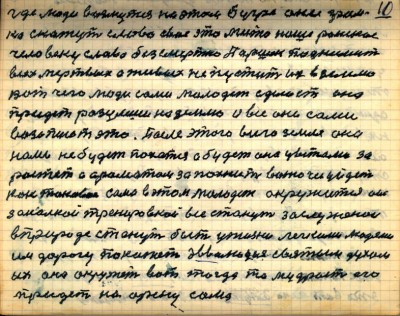 где люди возмутся на этом бугре они грам- 10
ко скажут слово свое это место наше райское
человеку слава бессмертно Паршек поднимит
всех мертвых а живых не пустит их в землю
вот чего люди сами молодеж сделают она
придет разумеш на землю и все они сами
возьпитают это. После этого всего земля она
нами не будит пахатся а будет она цвитами за
растет а араматом запохнить вонючи уйдет
как таковое само в этом молодеж окружится
закалкой тренировкой все станут заслуженой
в природе станут быт у жизни легкими людями
им дорогу покажет Эвванодея святым духом
их она окружет вот тогда то мудрост его
придет на арену сама